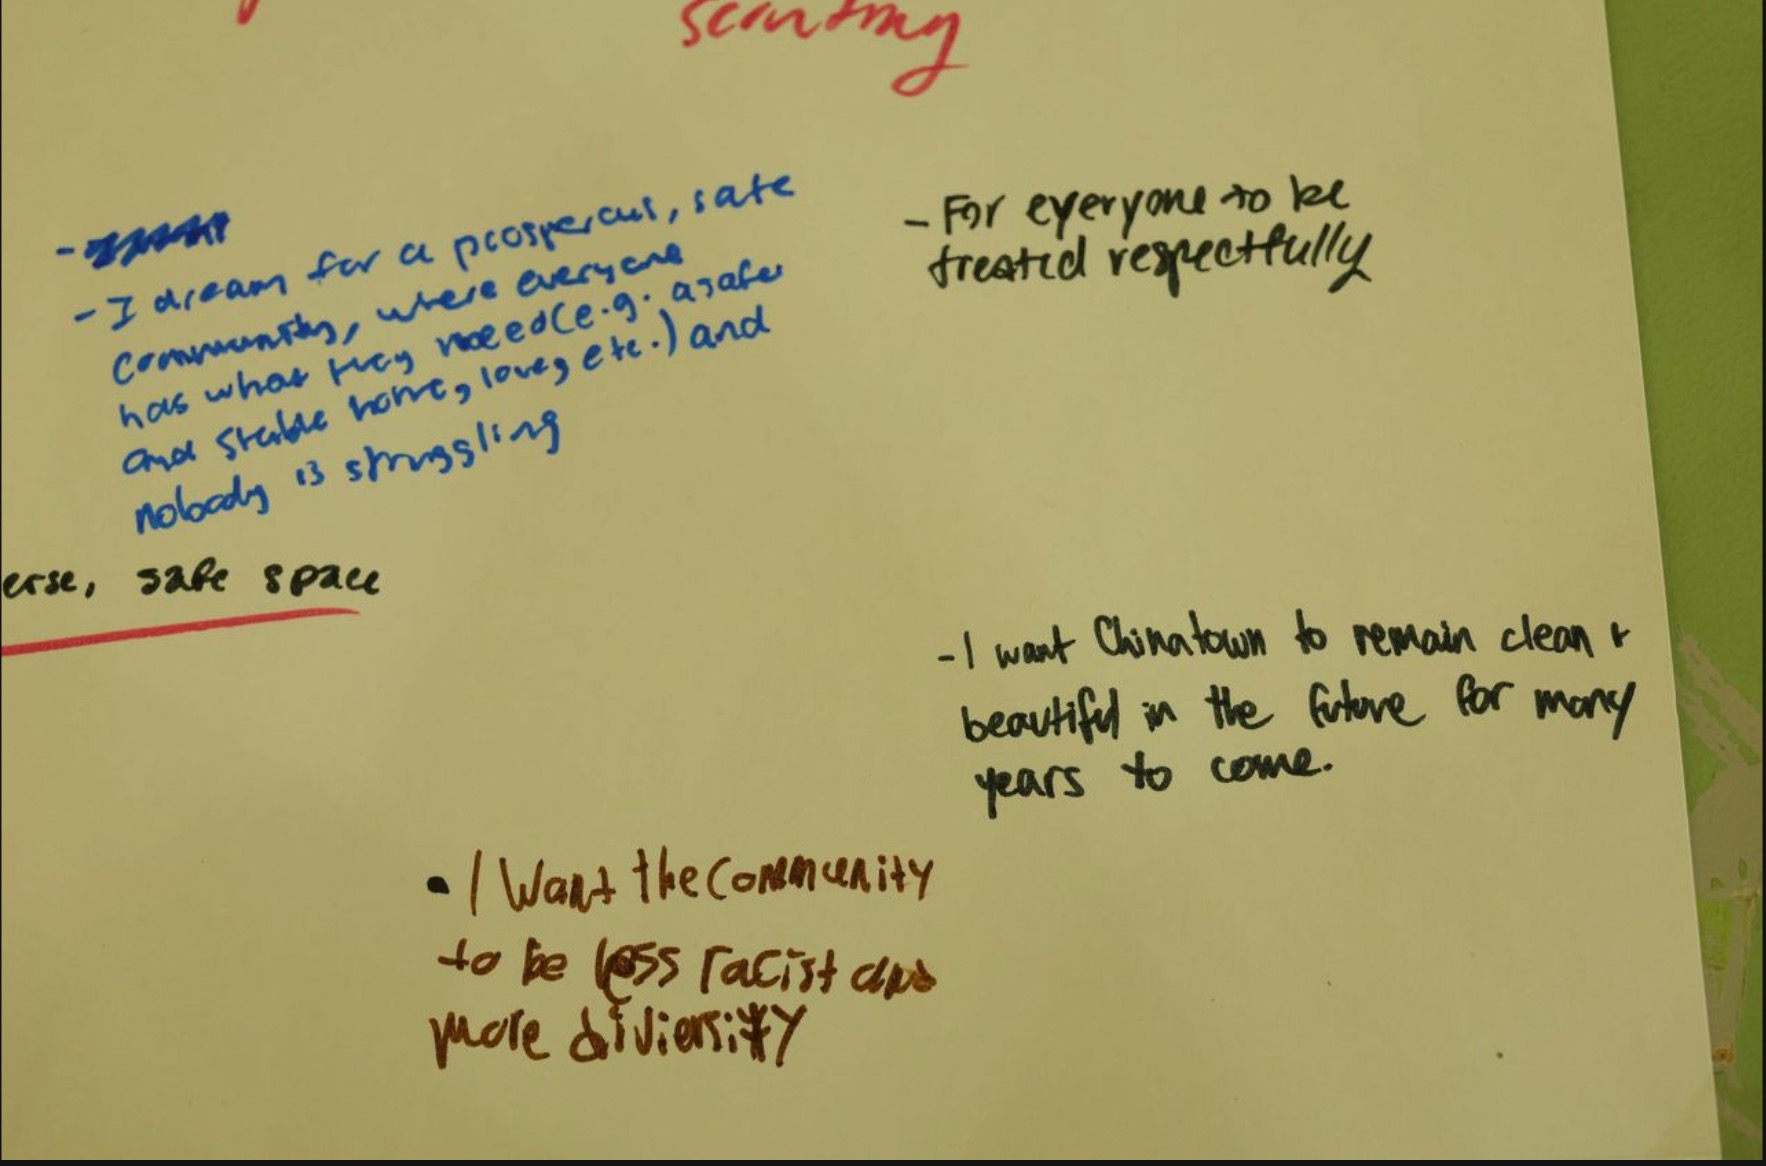 - I dream for a prosperous, safe
community, where everyone
has what they need (e.g. a safe
and stable home, love, etc.) and
nobody is struggling
- For everyone to be
treated respectfully
erse, safe space
- I want Chinatown to remain clean +
beautiful in the future for many
years to come.
• I Want the Community
to be less racist and
more diviersity